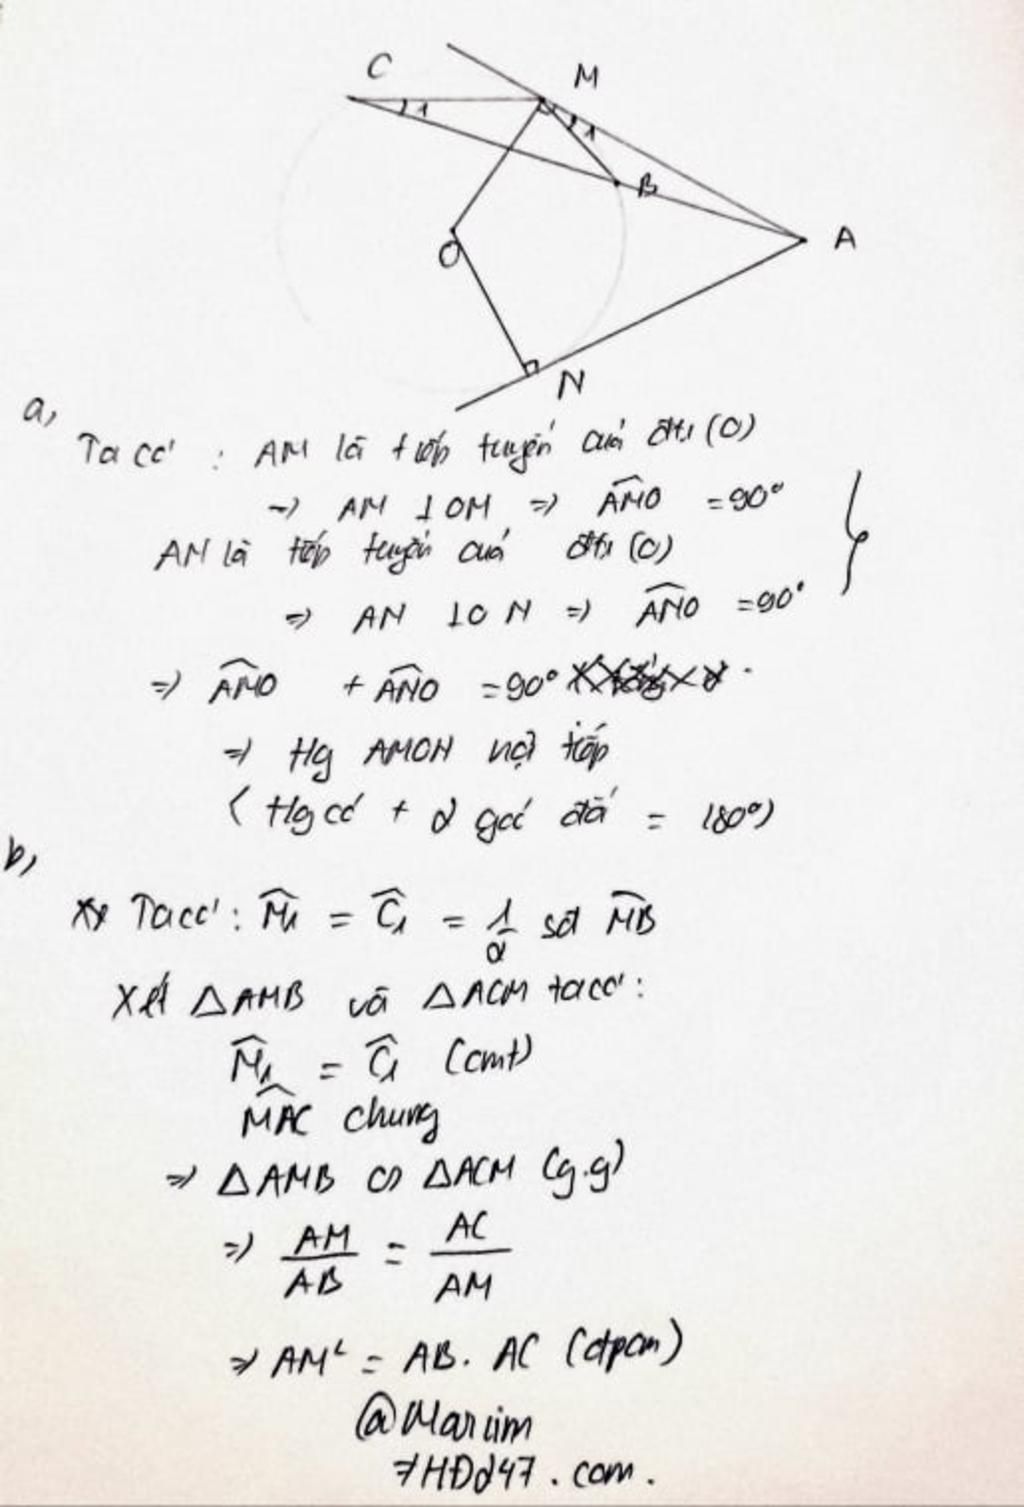 C
M
1
1
B
O
A
N
a,
Ta có : AM là tiếp tuyến của đtr (O)
→ AM ⊥ OM ⇒ \widehat{AMO} = 90°
AN là tiếp tuyến của đtr (O)
⇒ AN ⊥ ON ⇒ \widehat{ANO} = 90°
⇒ \widehat{AMO} + \widehat{ANO} = 90°
⇒ Hg AMON nội tiếp
( Hg có + 2 góc đối = 180°)
b,
Ta có : \widehat{M₁} = \widehat{C₁} = 1/2 sđ \widehat{MB}
Xét △AMB và △ACM ta có :
\widehat{M₁} = \widehat{C₁} (cmt)
\widehat{MAC} chung
⇒ △AMB ∽ △ACM (g.g)
⇒ AM/AB = AC/AM
⇒ AM² = AB. AC (đpcm)
@Marıım
7HĐ247 . com .